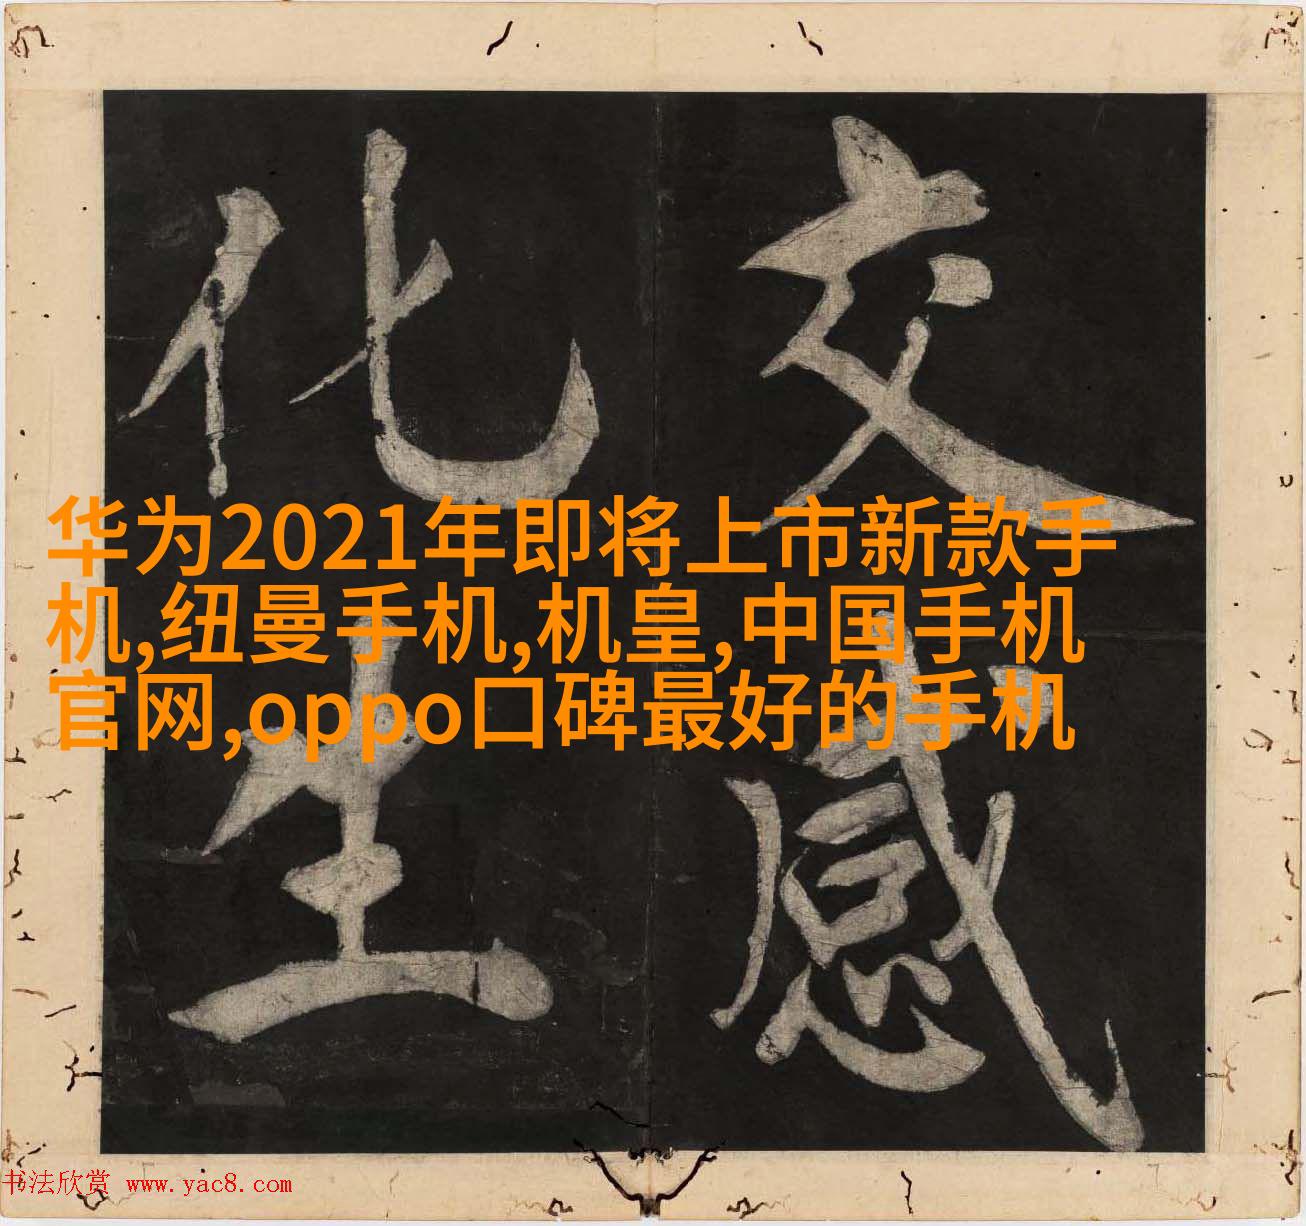 交感
化生
华为2021年即将上市新款手
机,纽曼手机,机皇,中国手机
官网,oppo口碑最好的手机
书法欣赏 www.yac8.com